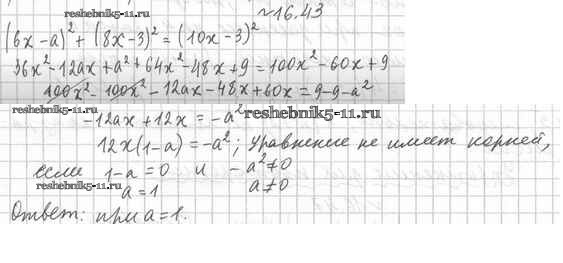 reshebnik5-11.ru
№16.43
(6x-a)² + (8x-3)² = (10x-3)²
reshebnik5-11.ru
36x²-12ax+a²+64x²-48x+9=100x²-60x+9
100x²-100x²-12ax-48x+60x=9-9-a²
-12ax+12x=-a²
reshebnik5-11.ru
12x(1-a)=-a²; уравнение не имеет корней,
если 1-a=0 и -a²≠0
reshebnik5-11.ru
a=1 a≠0
Ответ: при a=1.